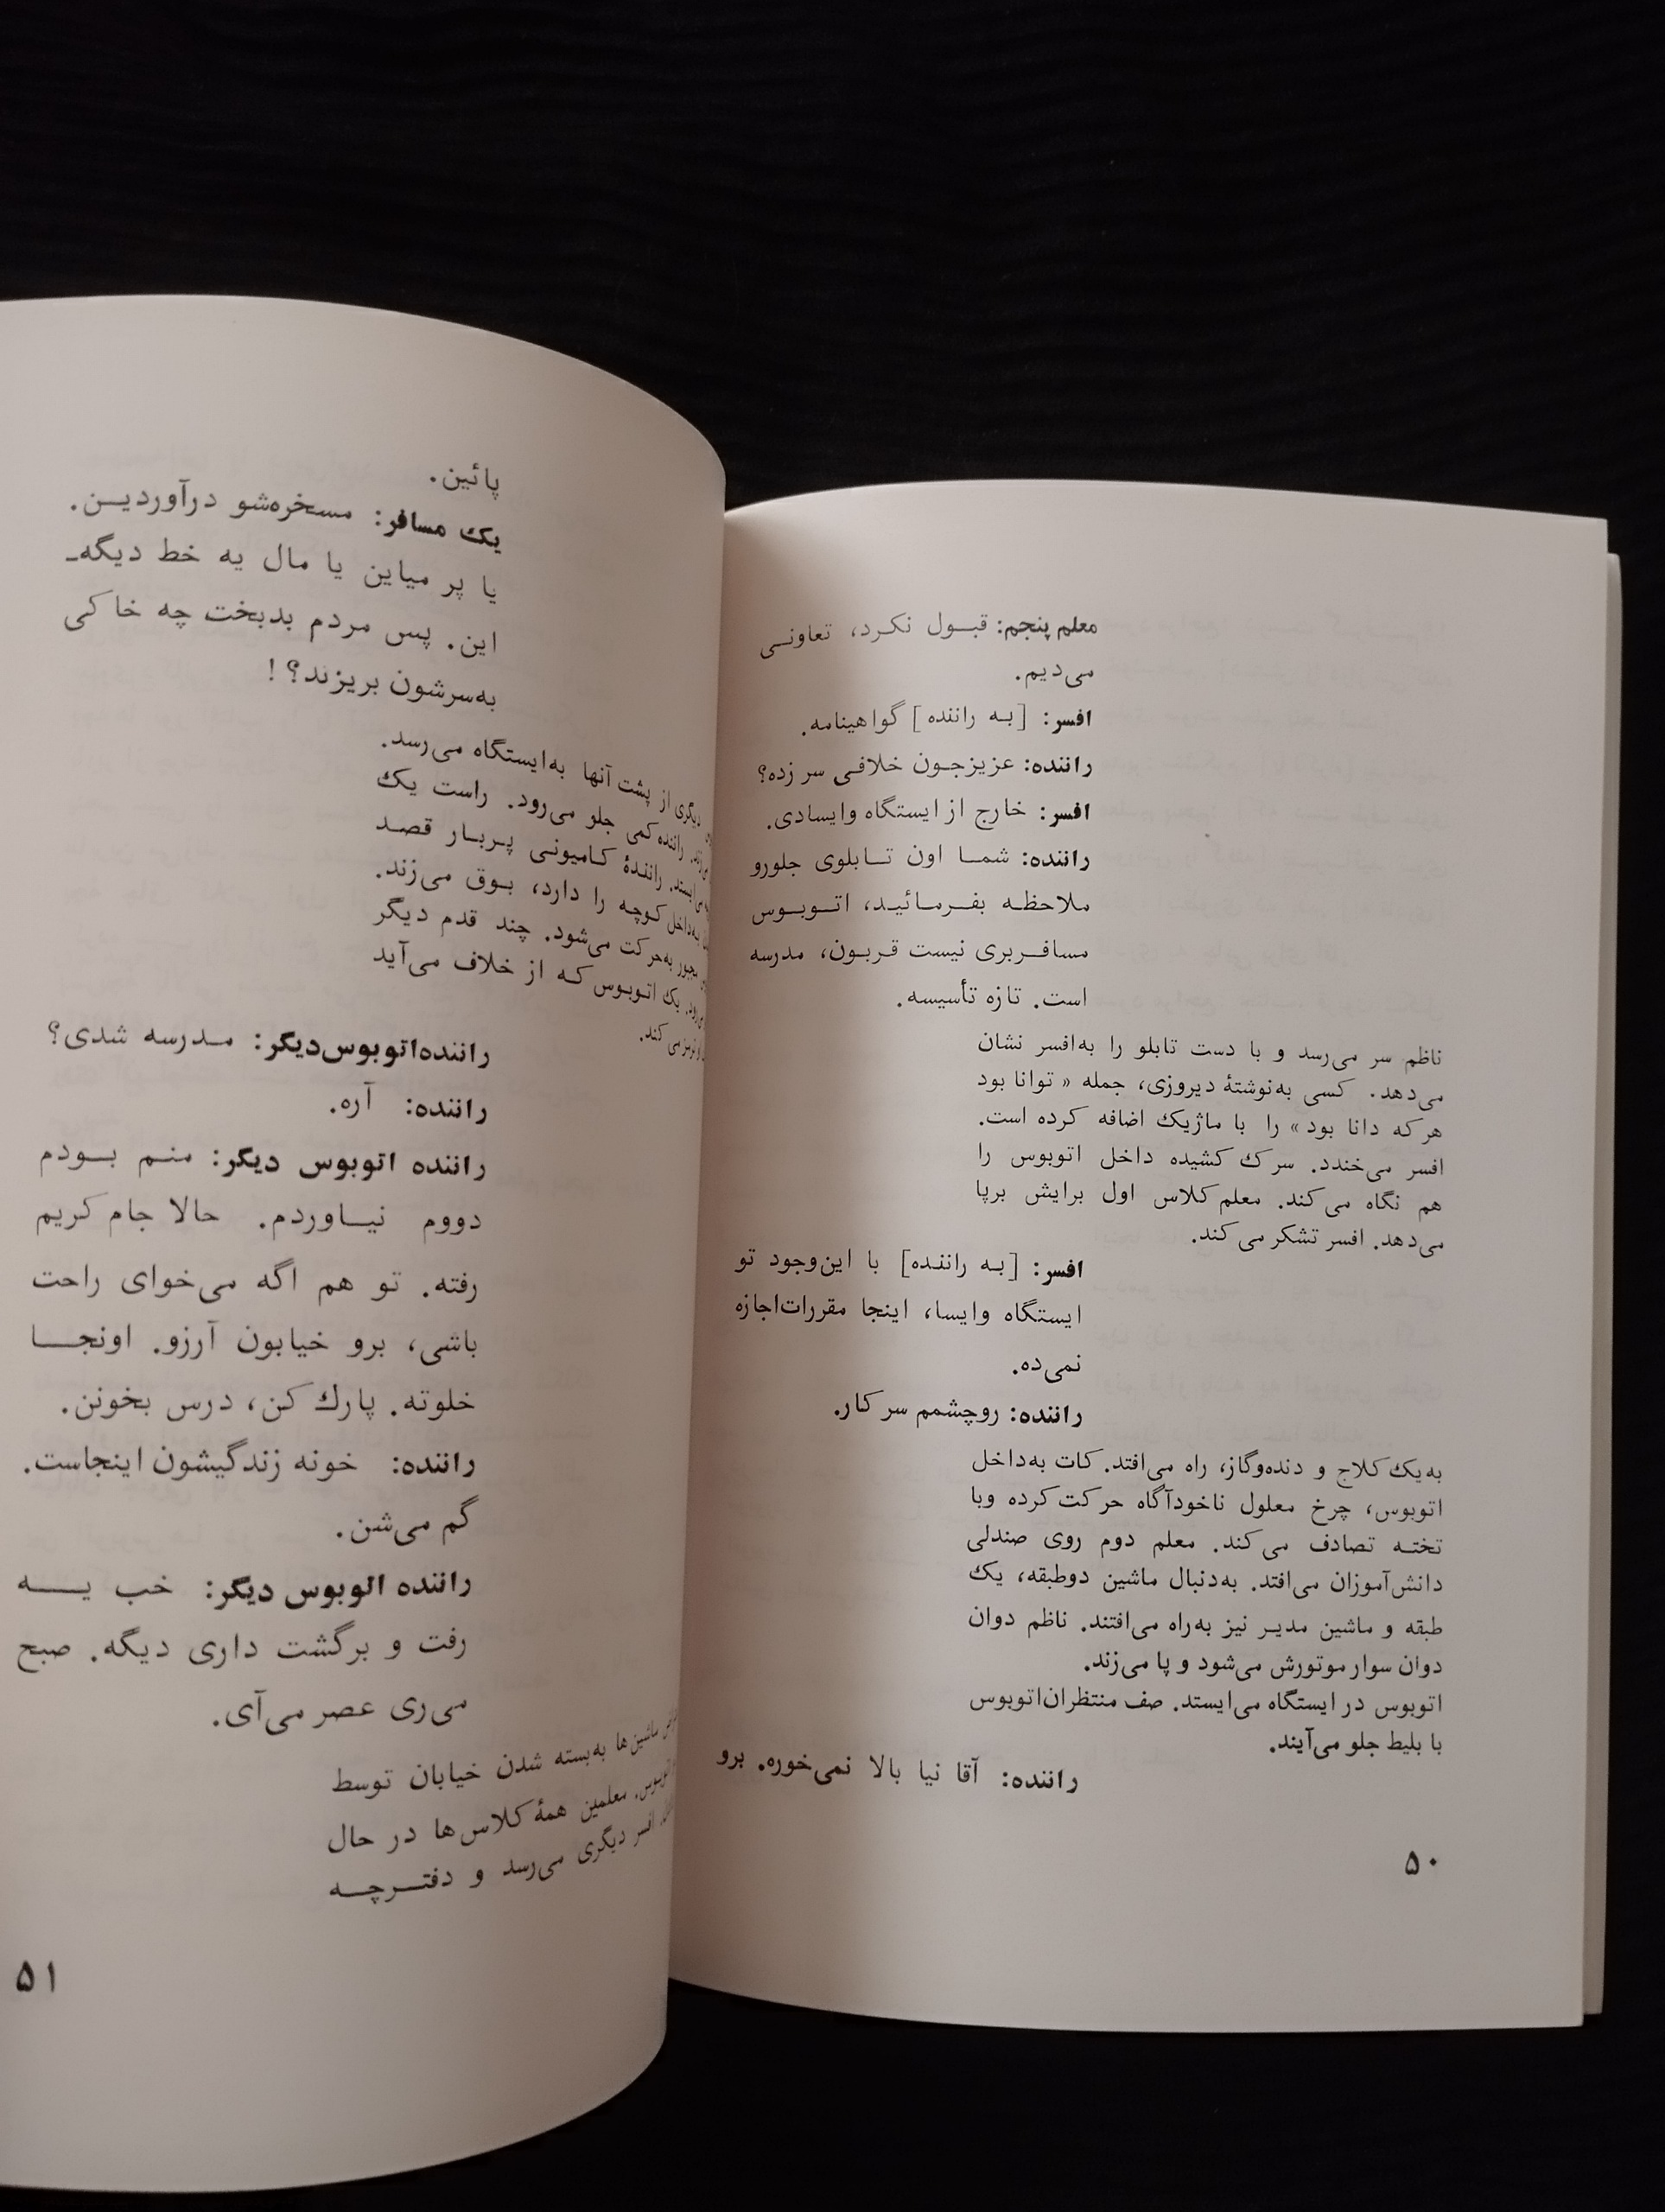 معلم پنجم: قبـول نکـرد، تعاونـی
می‌دیم.
افسر: [بـه راننده] گواهینامه.
راننده: عزیزجـون خلافـی سر زده؟
افسر: خارج از ایستگاه وایسادی.
راننده: شمـا اون تـابلوی جلورو
ملاحظـه بفـرمـائیـد، اتـوبـوس
مسافـربری نیست قـربـون، مدرسه
است. تازه تأسیسه.
ناظم سر می‌رسد و با دست تابلو را به‌افسر نشان
می‌دهد. کسی به‌نوشتهٔ دیروزی، جمله «توانا بود
هرکه دانا بود» را با ماژیک اضافه کرده است.
افسر می‌خندد. سرک کشیده داخل اتوبوس را
هم نگاه می‌کند. معلم کلاس اول برایش برپا
می‌دهد. افسر تشکر می‌کند.
افسر: [بـه راننده] با این‌وجود تو
ایستگاه وایسا، اینجا مقررات‌اجازه
نمی‌ده.
راننده: روچشمم سرکار.
به‌یک کلاج و دنده‌وگاز، راه می‌افتد. کات به‌داخل
اتوبوس، چرخ معلول ناخودآگاه حرکت کرده وبا
تختـه تصادف می‌کند. معلم دوم روی صندلی
دانش‌آموزان می‌افتد. به‌دنبال ماشین دوطبقه، یک
طبقه و ماشین مدیـر نیز به‌راه می‌افتند. ناظم دوان
دوان سوار موتورش می‌شود و پا می‌زند.
اتوبوس در ایستگاه می‌ایستد. صف منتظران‌اتوبوس
با بلیط جلو می‌آیند.
راننده: آقا نیا بالا نمی‌خوره. برو
۵۰
پائین.
یک مسافر: مسخره‌شو درآوردیـن.
یا پر میاین یا مال یه خط دیگه‌ـ
این. پس مردم بدبخت چه خاکی
به‌سرشون بریزند؟!
دیگری از پشت آنها به‌ایستگاه می‌رسد.
راننده کمی جلو می‌رود. راست یک
رانندهٔ کـامیونـی پـربـار قصـد
به‌داخل کوچه را دارد، بـوق می‌زند.
مجبور به‌حرکت می‌شود. چند قدم دیگر
یک اتوبوس کـه از خلاف می‌آید
ترمز می‌کند.
راننده‌اتوبوس‌دیگر: مـدرسه شدی؟
راننده: آره.
راننده اتوبوس دیگر: منـم بـودم
دووم نیـاوردم. حالا جام کریم
رفته. تو هم اگه می‌خوای راحت
باشی، برو خیابون آرزو. اونجـا
خلوته. پارک کن، درس بخونن.
راننده: خونه زندگیشون اینجاست.
گم می‌شن.
راننده اتوبوس دیگر: خب یـــه
رفت و برگشت داری دیگه. صبح
می‌ری عصر می‌آی.
ماشین‌ها به‌بسته شدن خیابان توسط
معلمین همهٔ کلاس‌ها در حال
افسر دیگری می‌رسد و دفتـرچـه
۵۱